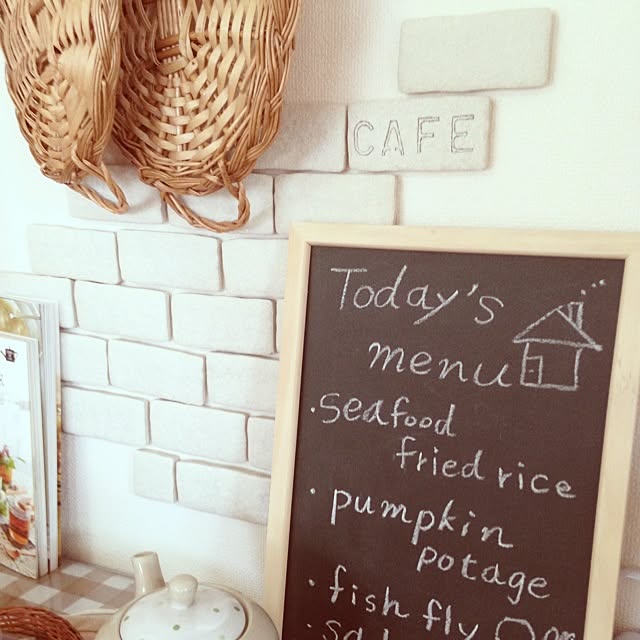 CAFE
Today's
menu
· seafood
fried rice
· pumpkin
potage
· fish fly